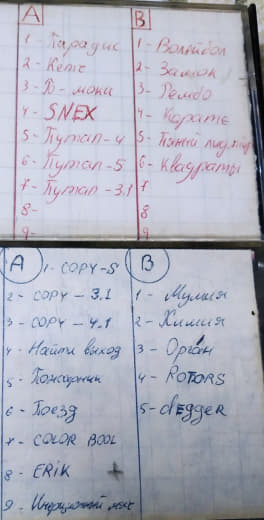 A
1 - Парадис
2 - Кетс
3 - Б-моки
4 - SNEX
5 - Путап-4
6 - Путап-5
7 - Путап-3.1
8 -
9 -
B
1 - Волейбол
2 - Замок
3 - Рембо
4 - Каратэ
5 - Пьяный
6 - Квадраты
7
8
9
A
1 - COPY-S
2 - COPY - 3.1
3 - COPY - 4.1
4 - Найти выход
5 - Пожарник
6 - Поезд
7 - COLOR BOOL
8 - ERIK +
9 - Инерционный мяч
B
1 - Мумия
2 - Химия
3 - Орган
4 - ROTORS
5 - dEggeR